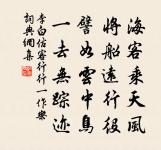 海客乘天風
將船遠行役
譬如雲中鳥
一去無踪迹
李白估客行行一作樂
詞典網集